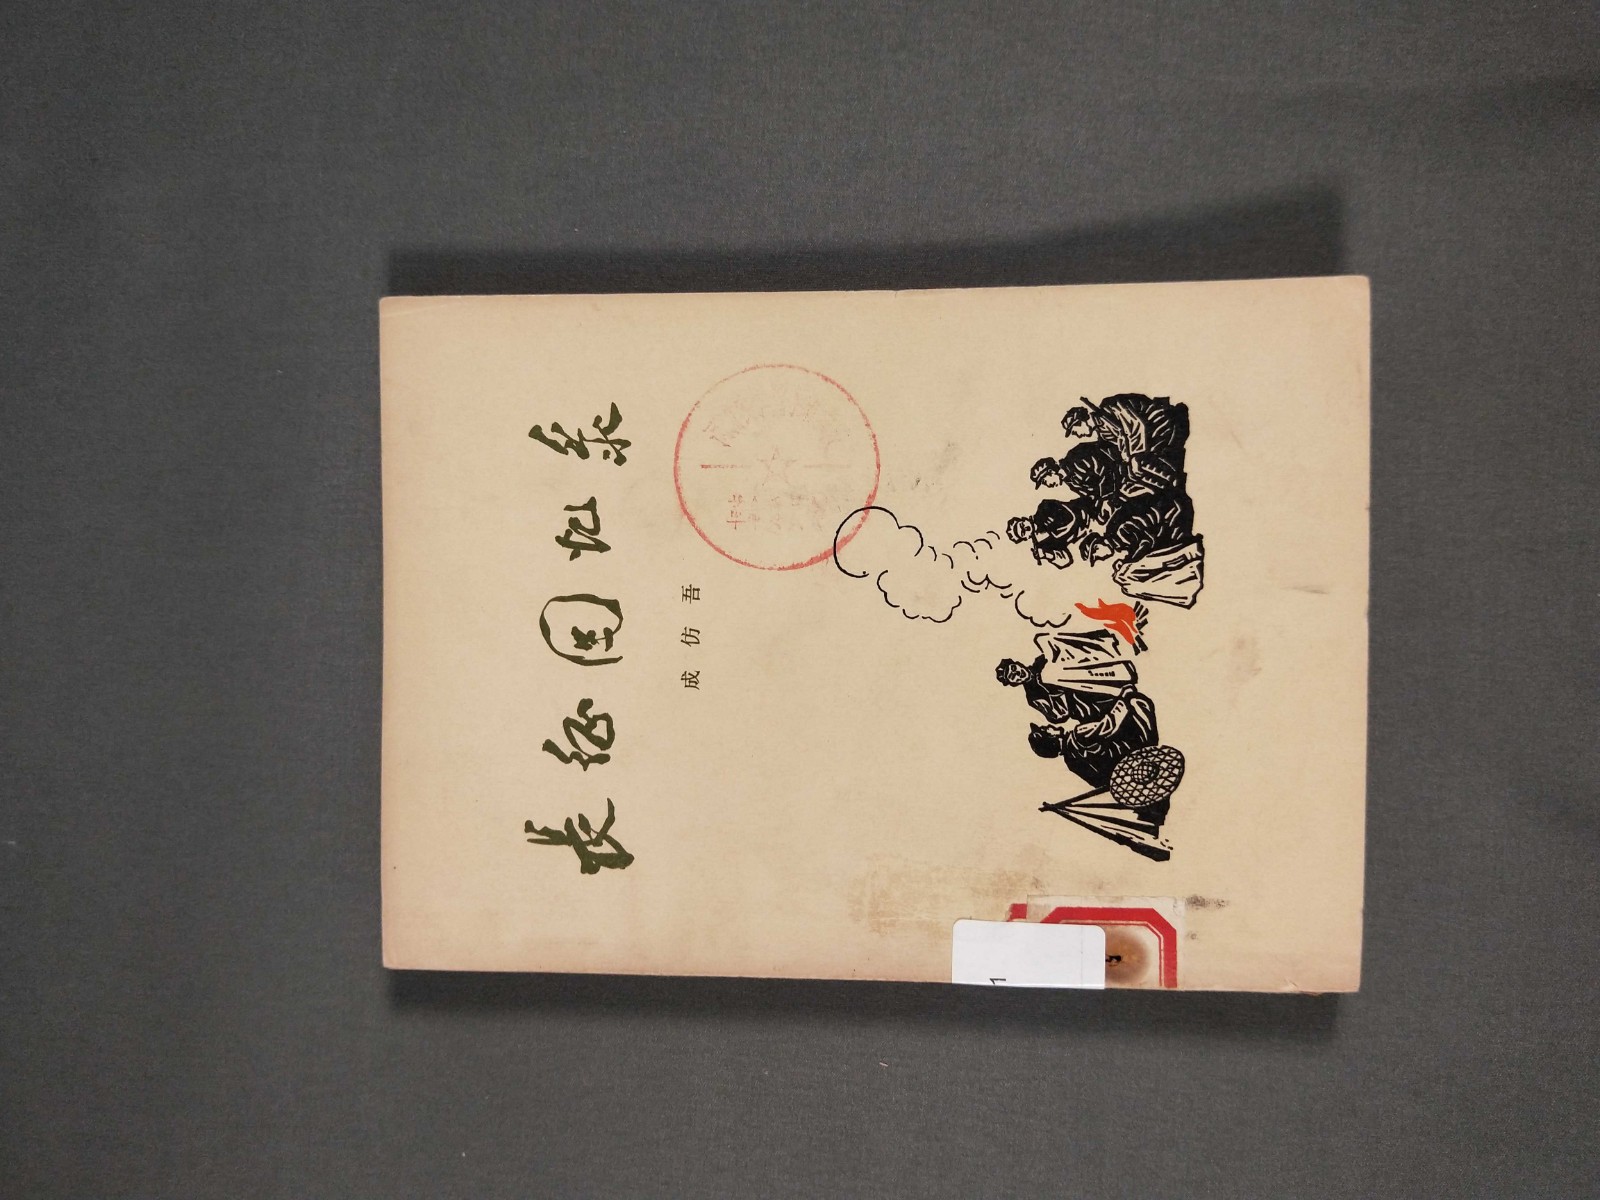 长征回忆录
成仿吾
1